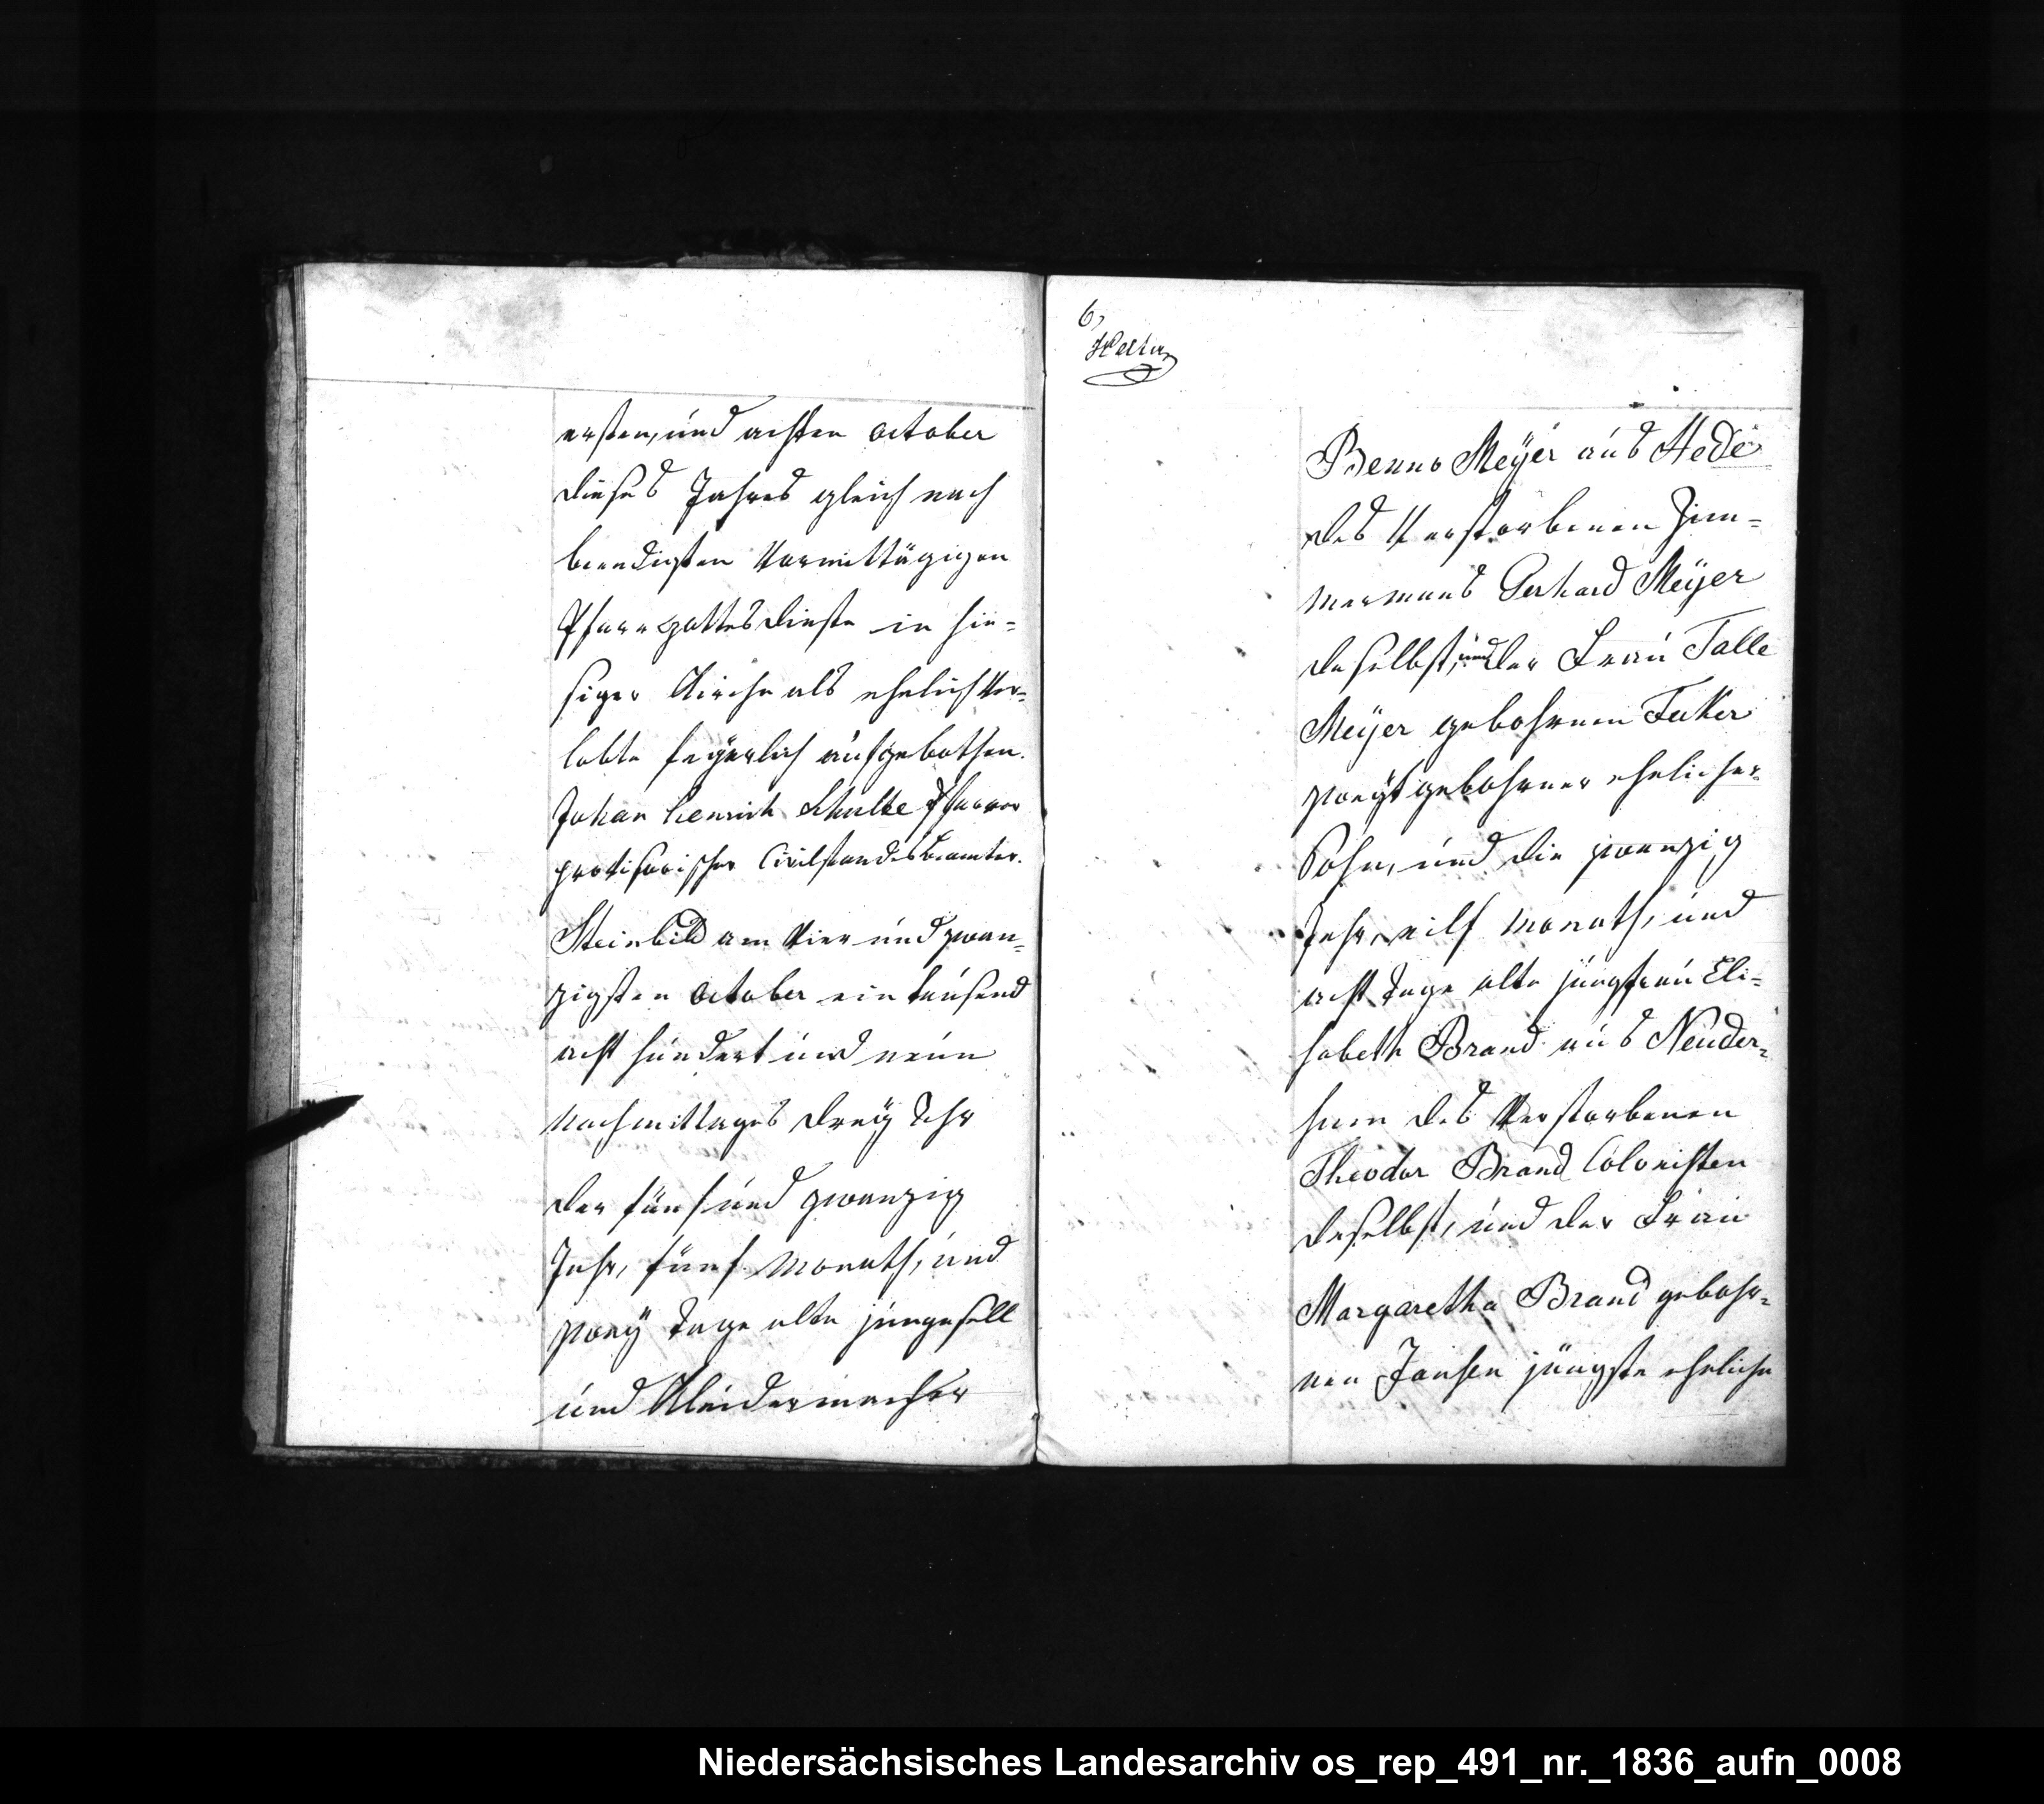 ersten, und achten October
dieses Jahres gleich nach
beendigten Vormittägigen
Pfarrgottesdienste in hie-
siger Kirche als ehelich Ver-
lobte feyerlich aufgebothen.
Johan Henrich Schulte Pfarrer
provisorischer Civilstandesbeamter.
Steinbild am Vier und zwan-
zigsten October ein tausend
acht hundert und neun
Nachmittages dreÿ Uhr
der fünf und zwanzig
Jahr, fünf Monath, und
zweÿ Tage alte jungesell
und Kleidermacher
6,
Benno Meÿer aus Hede
des Verstorbenen Zim-
mermans Gerhard Meÿer
daselbst, und der Frau Talle
Meÿer gebohrnen Feker
zweÿt gebohrner ehelicher
Sohn, und die zwanzig
Jahr, eilf Monath, und
acht Tage alte jungfrau Eli-
sabeth Brand aus Neuder-
sum des Verstorbenen
Theodor Brand Colonisten
daselbst, und der Frau
Margaretha Brand gebohr-
nen Jansen jüngste eheliche
Niedersächsisches Landesarchiv os_rep_491_nr._1836_aufn_0008